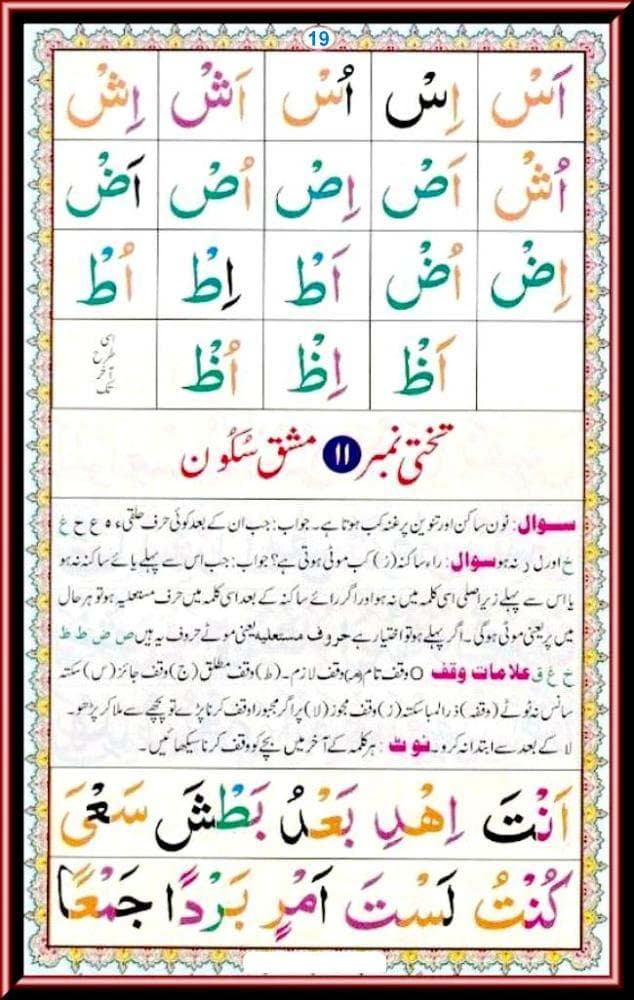 19
اَسْ اِسْ اُسْ اَشْ اِشْ
اُشْ اَصْ اِصْ اُصْ اَضْ
اِضْ اُضْ اَطْ اِطْ اُطْ
اَظْ اِظْ اُظْ اسی طرح آخر تک
تختی نمبر ۱۱ مشق سُکُون
سوال: نون ساکن اور تنوین پر غنہ کب ہوتا ہے۔ جواب: جب ان کے بعد کوئی حرف حلقی ء ہ ع ح غ
خ اور ل ر نہ ہو سوال: راء ساکنہ (رْ) کب موٹی ہوتی ہے؟ جواب: جب اس سے پہلے یائے ساکنہ نہ ہو
یا اس سے پہلے زیر اصلی اسی کلمہ میں نہ ہو اور اگر رائے ساکنہ کے بعد اسی کلمہ میں حرف مستعلیہ ہو تو ہر حال
میں پر یعنی موٹی ہوگی۔ اگر پہلے ہو تو اختیار ہے حروف مستعلیہ یعنی موٹے حروف یہ ہیں ص ض ط ظ
خ غ ق علامات وقف O وقف تام (م) وقف لازم۔ (ط) وقف مطلق (ج) وقف جائز (س) سکتہ
سانس نہ ٹوٹے (وقفہ) ذرا لمبا سکتہ (ز) وقف مجوز (لا) پر اگر مجبوراً وقف کرنا پڑے تو پیچھے سے ملا کر پڑھو۔
لا کے بعد سے ابتدا نہ کرو۔ نوٹ: ہر کلمہ کے آخر میں بچے کو وقف کرنا سیکھائیں۔
اَنْتَ اِهْدِ بَعْدُ بَطْشَ سَعْیَ
کُنْتُ لَسْتَ اَمْرٍ بَرْدًا جَمْعًا